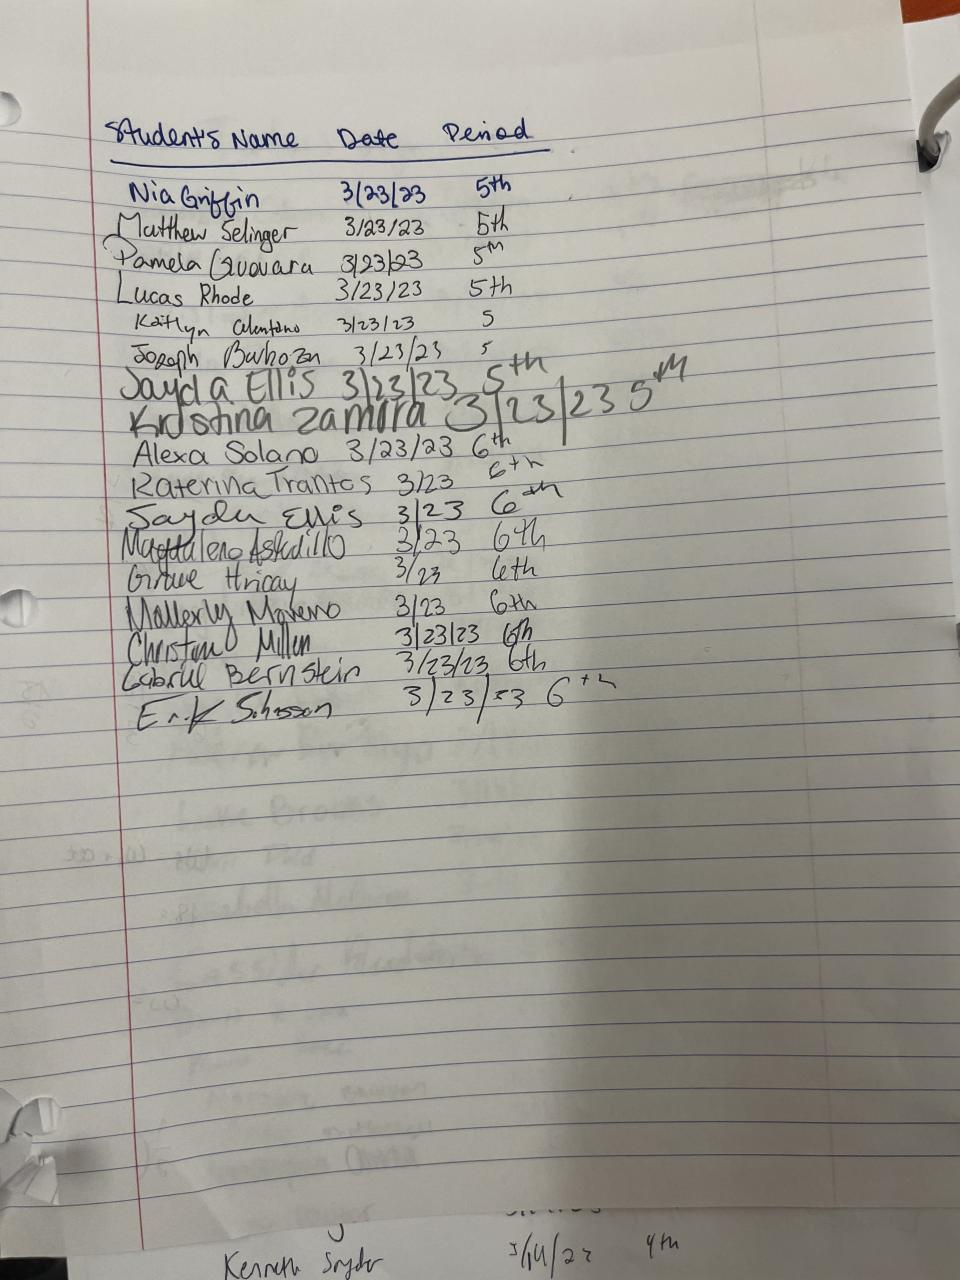 Student's Name Date Period
Nia Griffin 3/23/23 5th
Matthew Selinger 3/23/23 5th
Pamela Guovara 3/23/23 5th
Lucas Rhode 3/23/23 5th
Kaitlyn 3/23/23 5
Joseph Barboza 3/23/23 5
Jayda Ellis 3/23/23 5th
Kristina Zamora 3/23/23 5th
Alexa Solano 3/23/23 6th
Katerina Trantos 3/23 6th
Jayda Ellis 3/23 6th
Magdalena 3/23 6th
Hricay 3/23 6th
Mallerly Moreno 3/23 6th
Christian Millen 3/23/23 6th
Gabriel Bernstein 3/23/23 6th
Erik 3/23/23 6th
Kenneth Snyder 4th